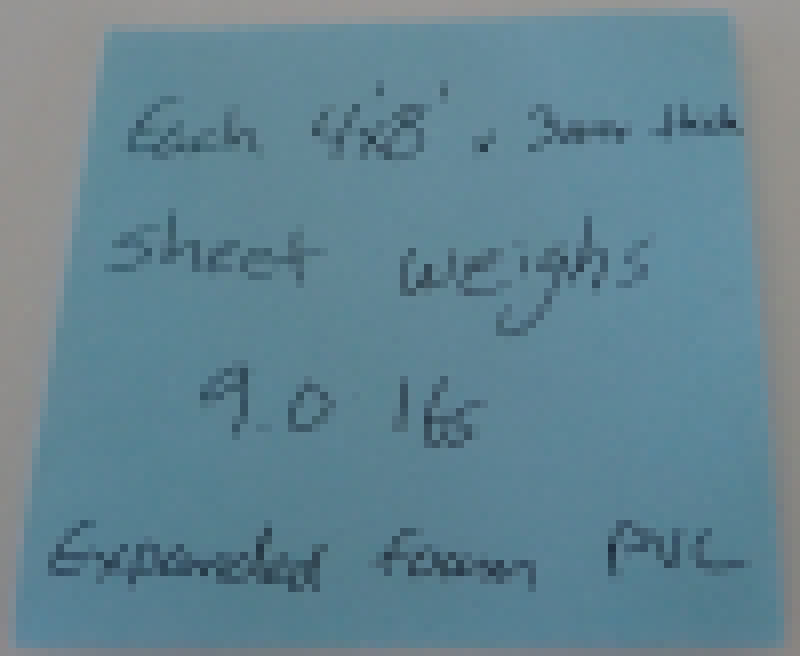 Each 4'x8' x 3mm thick
sheet weighs
9.0 lbs
Expanded foam PVC